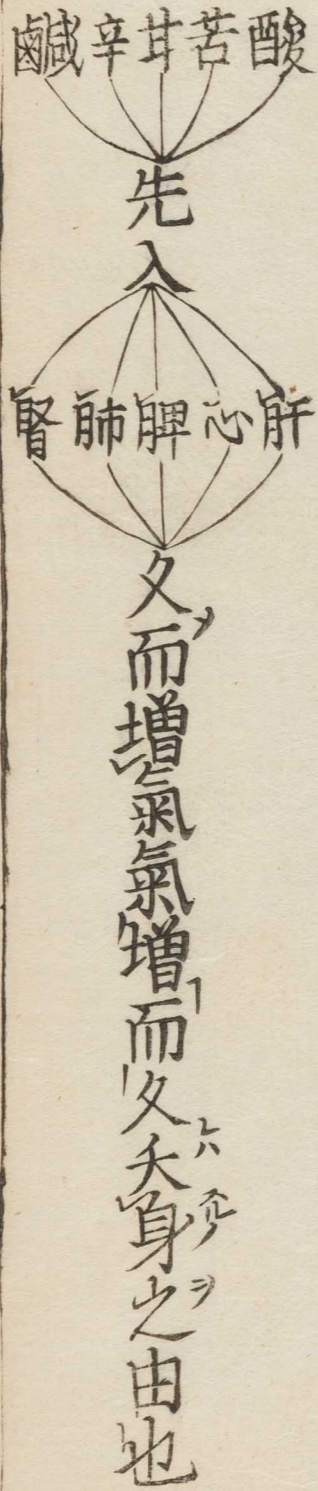 酸苦甘辛鹹
先入
肝心脾肺腎
久而增氣氣增而久夭身之由也